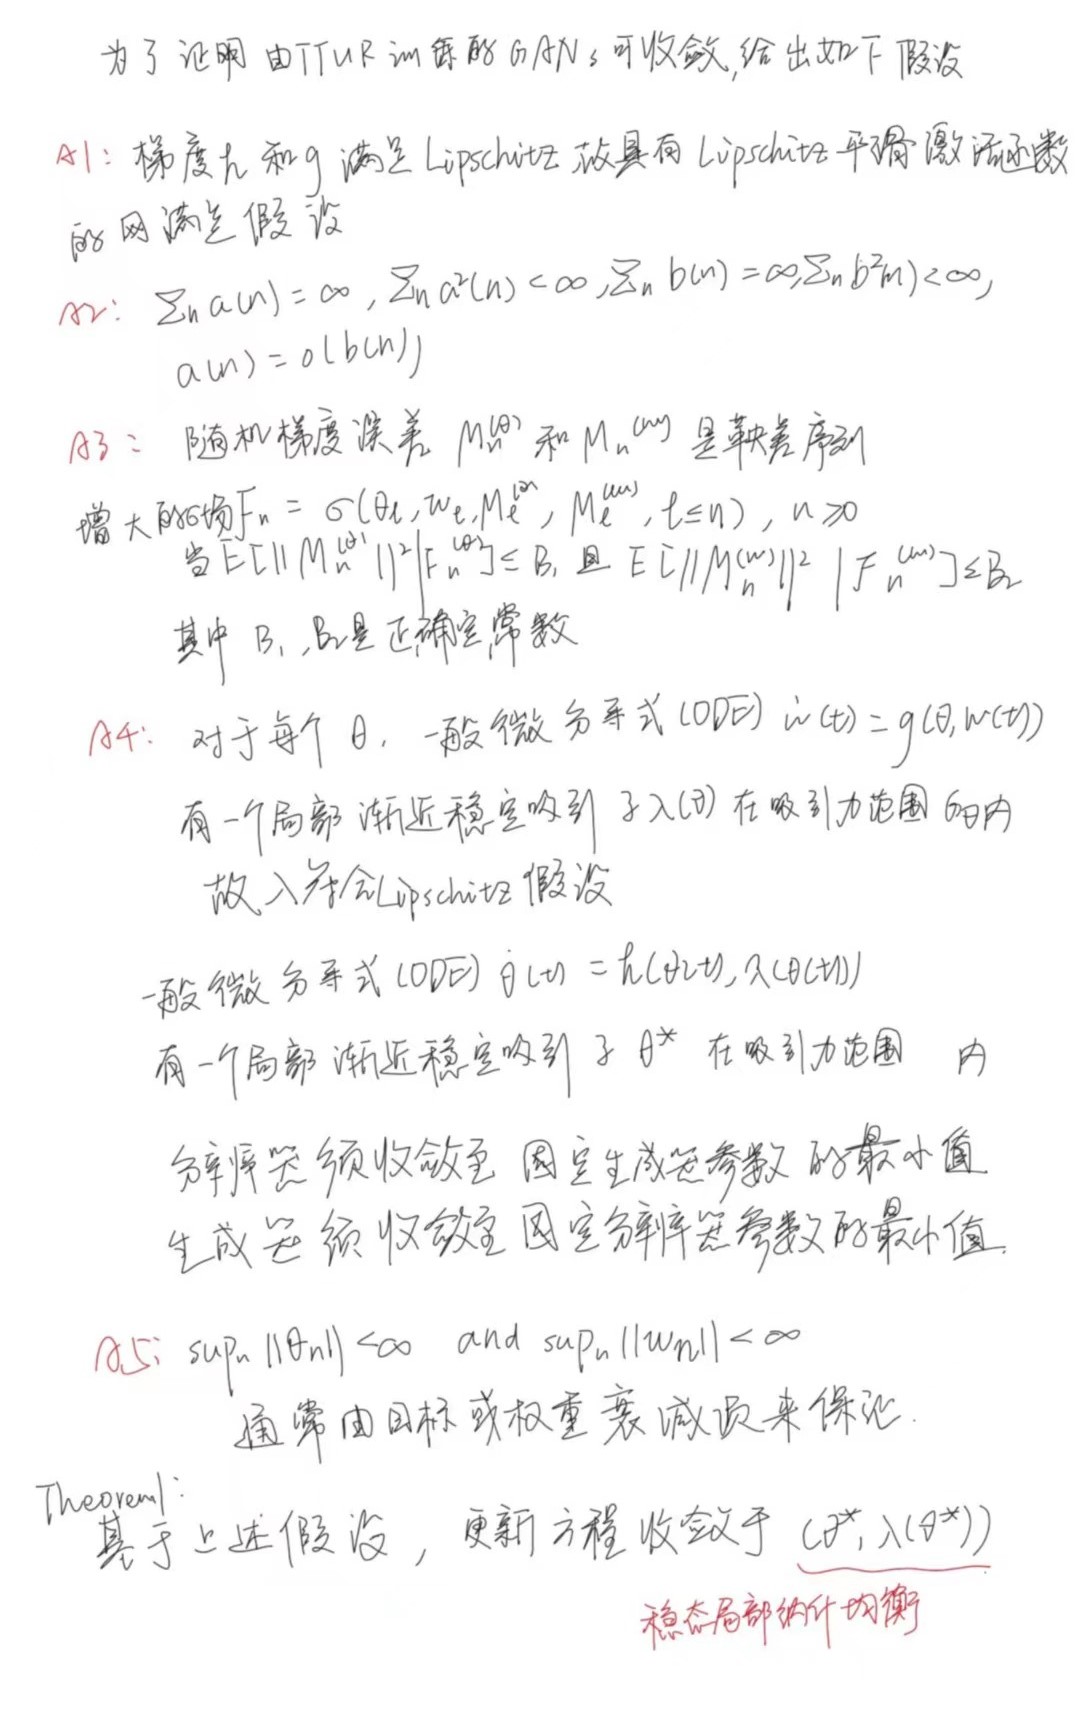 为了证明由TTUR训练的GANs可收敛,给出如下假设
A1: 梯度h和g满足Lipschitz 故具有Lipschitz平滑激活函数
的网满足假设
A2: Σn a(n) = ∞, Σn a²(n) < ∞, Σn b(n) = ∞, Σn b²(n) < ∞,
a(n) = o(b(n))
A3: 随机梯度误差 Mn^(θ) 和 Mn^(w) 是鞅差序列
增大的σ场Fn = σ(θl, wl, Ml^(θ), Ml^(w), l≤n), n≥0
当E[||Mn^(θ)||²|Fn^(θ)]≤B1 且 E[||Mn^(w)||²|Fn^(w)]≤B2
其中 B1, B2是正确定常数
A4: 对于每个θ, 一般微分等式(ODE) ẇ(t) = g(θ, w(t))
有一个局部渐近稳定吸引子λ(θ)在吸引力范围Gθ内
故λ符合Lipschitz假设
一般微分等式(ODE) θ̇(t) = h(θ(t), λ(θ(t)))
有一个局部渐近稳定吸引子 θ* 在吸引力范围 内
分辨器须收敛至固定生成器参数的最小值
生成器须收敛至固定分辨器参数的最小值.
A5: supn ||θn|| < ∞ and supn ||wn|| < ∞
通常由目标或权重衰减项来保证.
Theorem1:
基于上述假设, 更新方程收敛于 (θ*, λ(θ*))
稳态局部纳什均衡